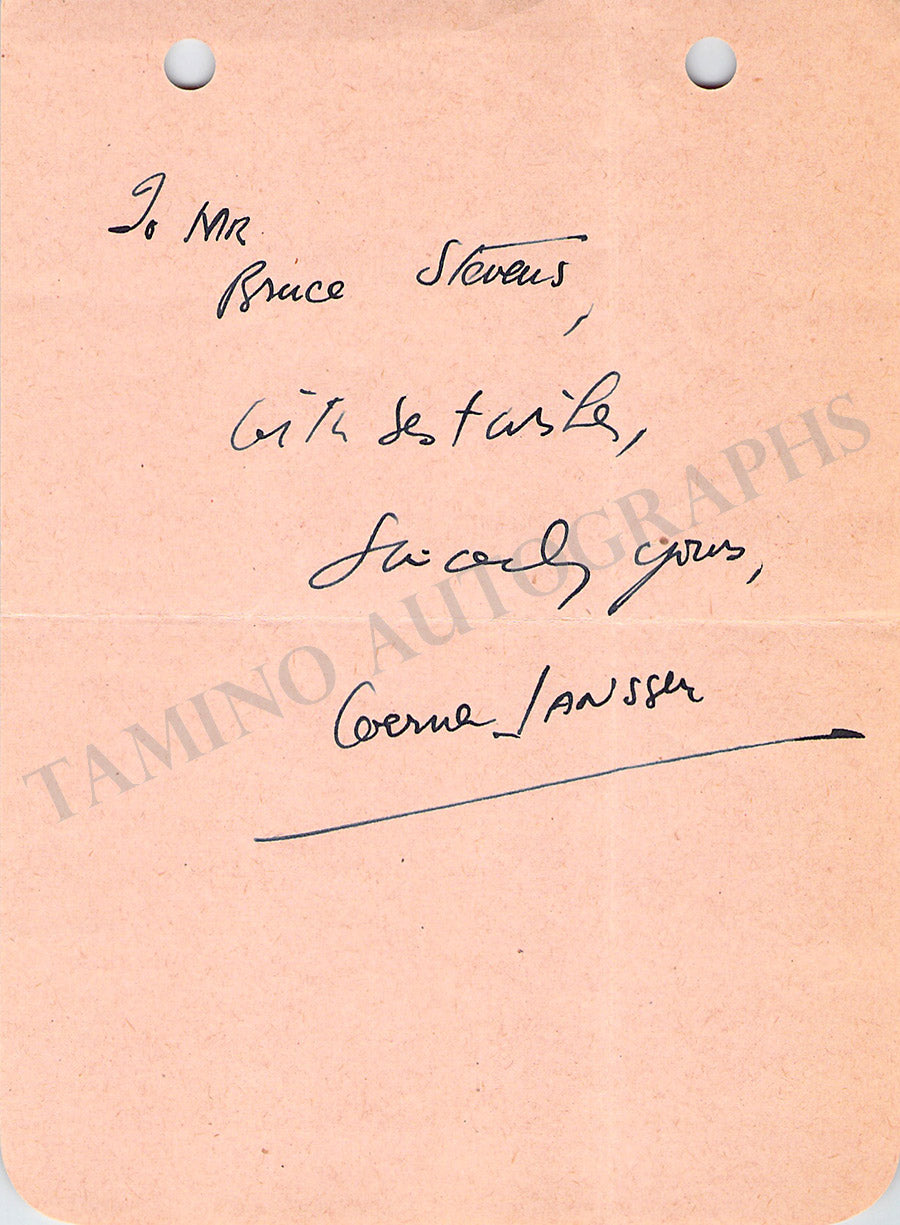 To MR
Bruce Stevens,
with best wishes,
Sincerely yours,
Werner JANSSEN
TAMINO AUTOGRAPHS